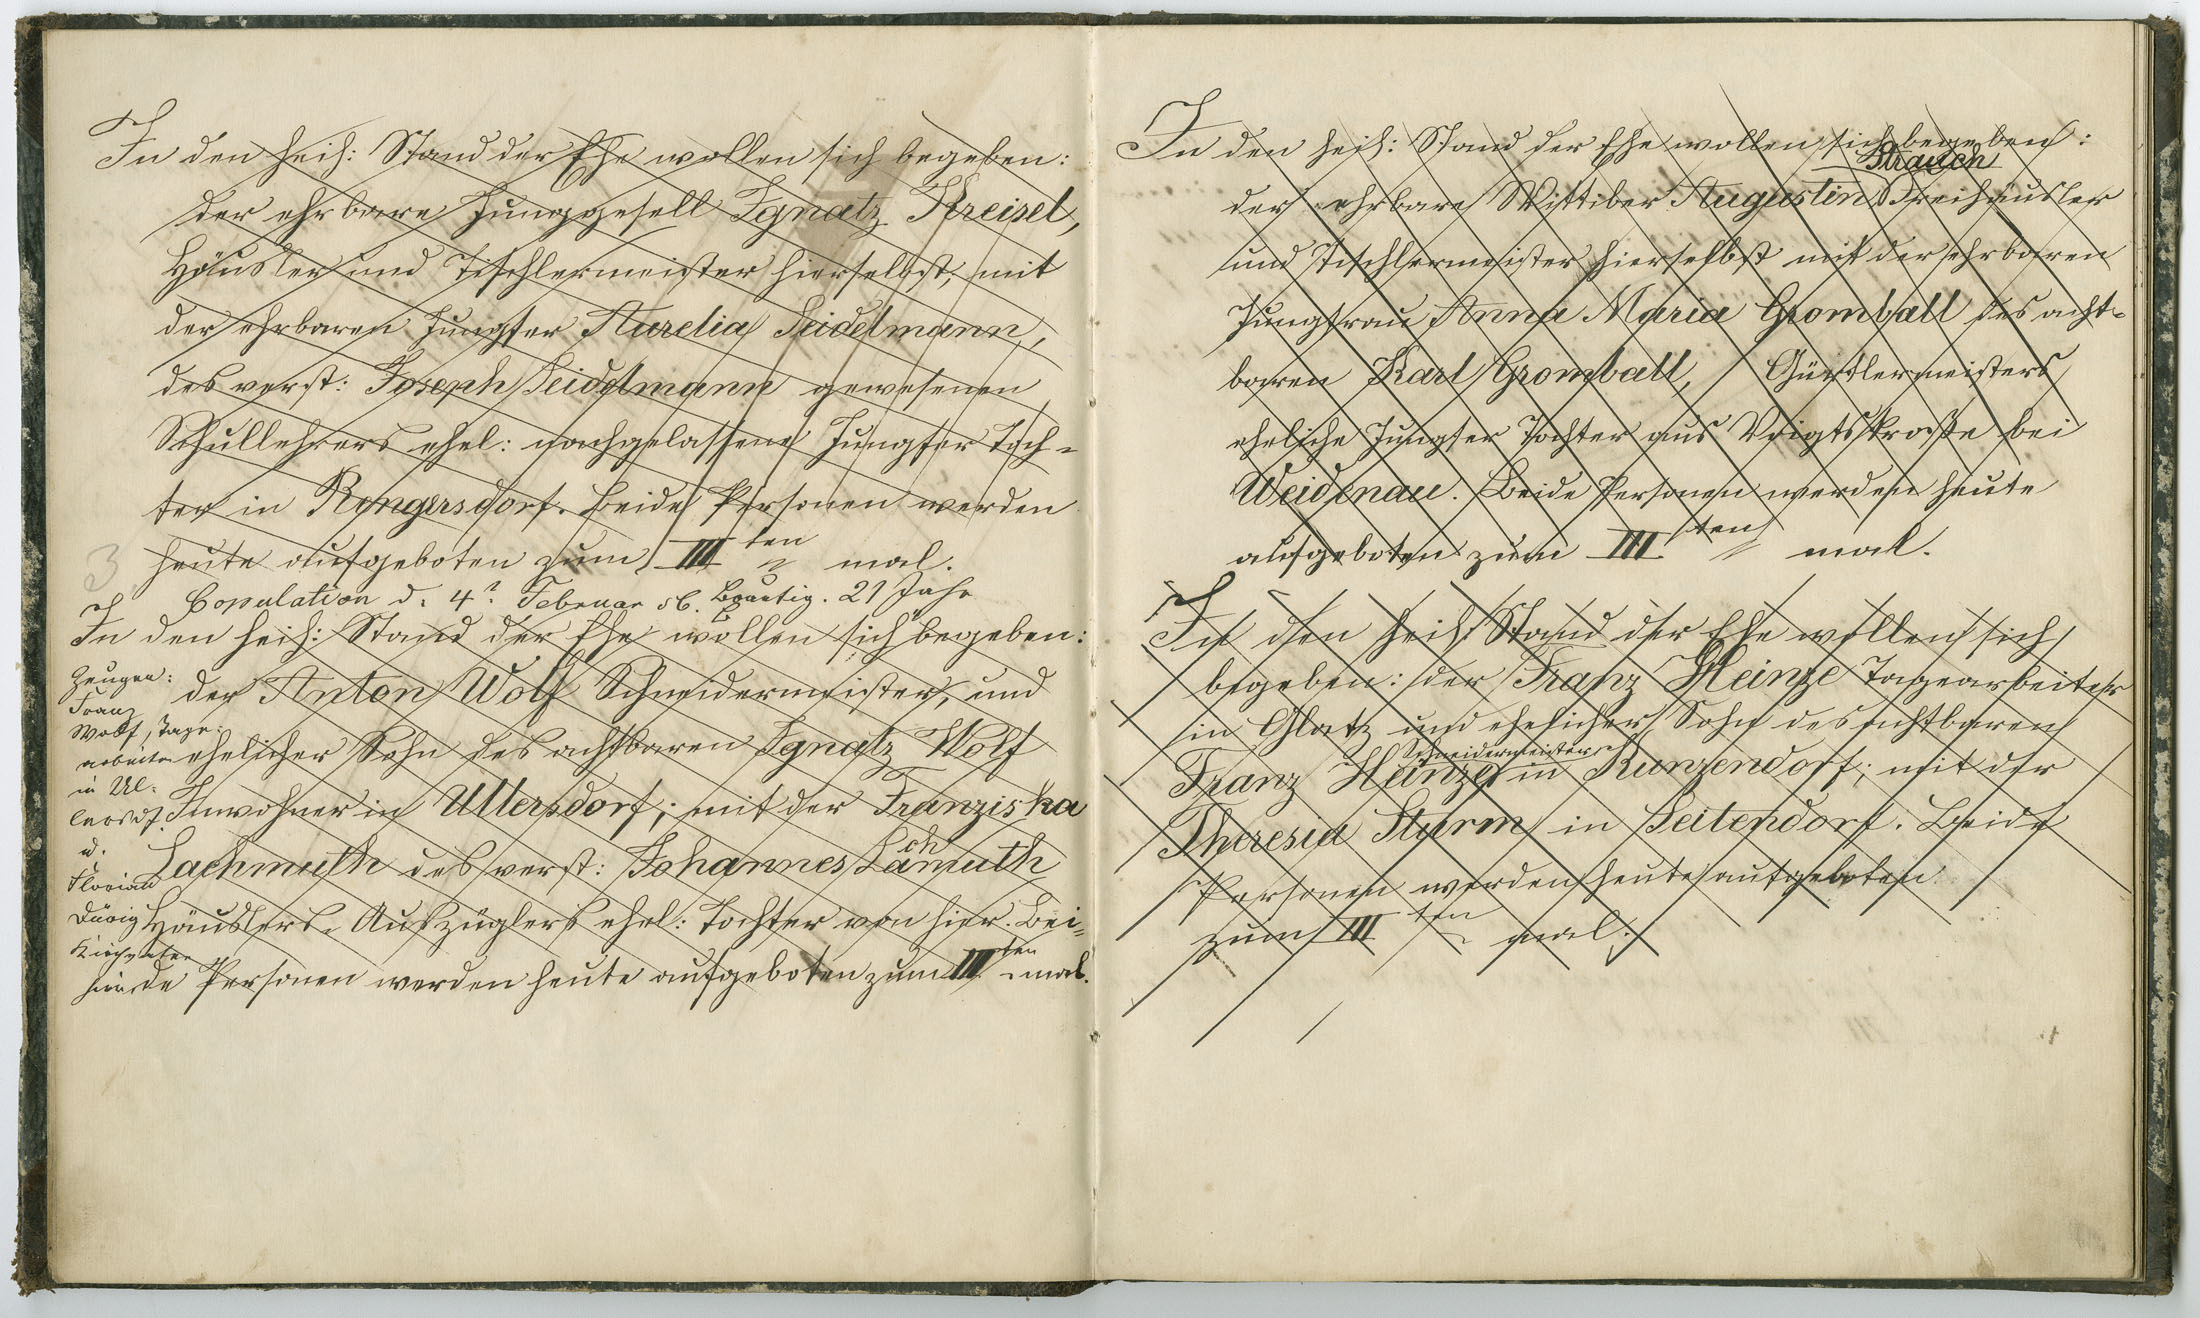 In den heil: Stand der Ehe wollen sich begeben:
der ehrbare Junggesell Ignatz Kreisel,
Häusler und Tischlermeister hierselbst, mit
der ehrbaren Jungfer Aurelia Seidelmann,
des verst: Joseph Seidelmann gewesenen
Schullehrers ehel: nachgelassene Jungfer Toch-
ter in Rengersdorf. Beide Personen werden
3 heute aufgeboten zum III ten mal.
Copulation d. 4t Februar 56. Bräutig. 21 Jahr
In den heil: Stand der Ehe wollen sich begeben:
der Anton Wolf Schneidermeister, und
ehelicher Sohn des achtbaren Ignatz Wolf
Inwohner in Ullersdorf; mit der Franziska
Lachmuth des verst: Johannes Lachmuth
Häuslers, Auszüglers ehel: Tochter von hier. Bei-
de Personen werden heute aufgeboten zum III ten mal.
Zeugen:
Franz
Wolf, Tage:
arbeiter
in Ul:
lersdf.
u.
Florian
hier
In den heil: Stand der Ehe wollen sich begeben:
Strauch
der ehrbare Wittiber Augustin Freihäusler
und Tischlermeister hierselbst mit der ehrbaren
Jungfrau Anna Maria Gromball des acht-
baren Karl Gromball, Gürtlermeisters
eheliche Jungfer Tochter aus Voigtskraße bei
Weidenau. Beide Personen werden heute
aufgeboten zum III ten mal.
In den heil: Stand der Ehe wollen sich
begeben: der Franz Heinze Tagearbeiter
in Glatz und ehelicher Sohn des achtbaren
Schneidermeister
Franz Heinze in Kunzendorf; mit der
Theresia Sturm in Seitendorf. Beide
Personen werden heute aufgeboten
zum III ten mal.